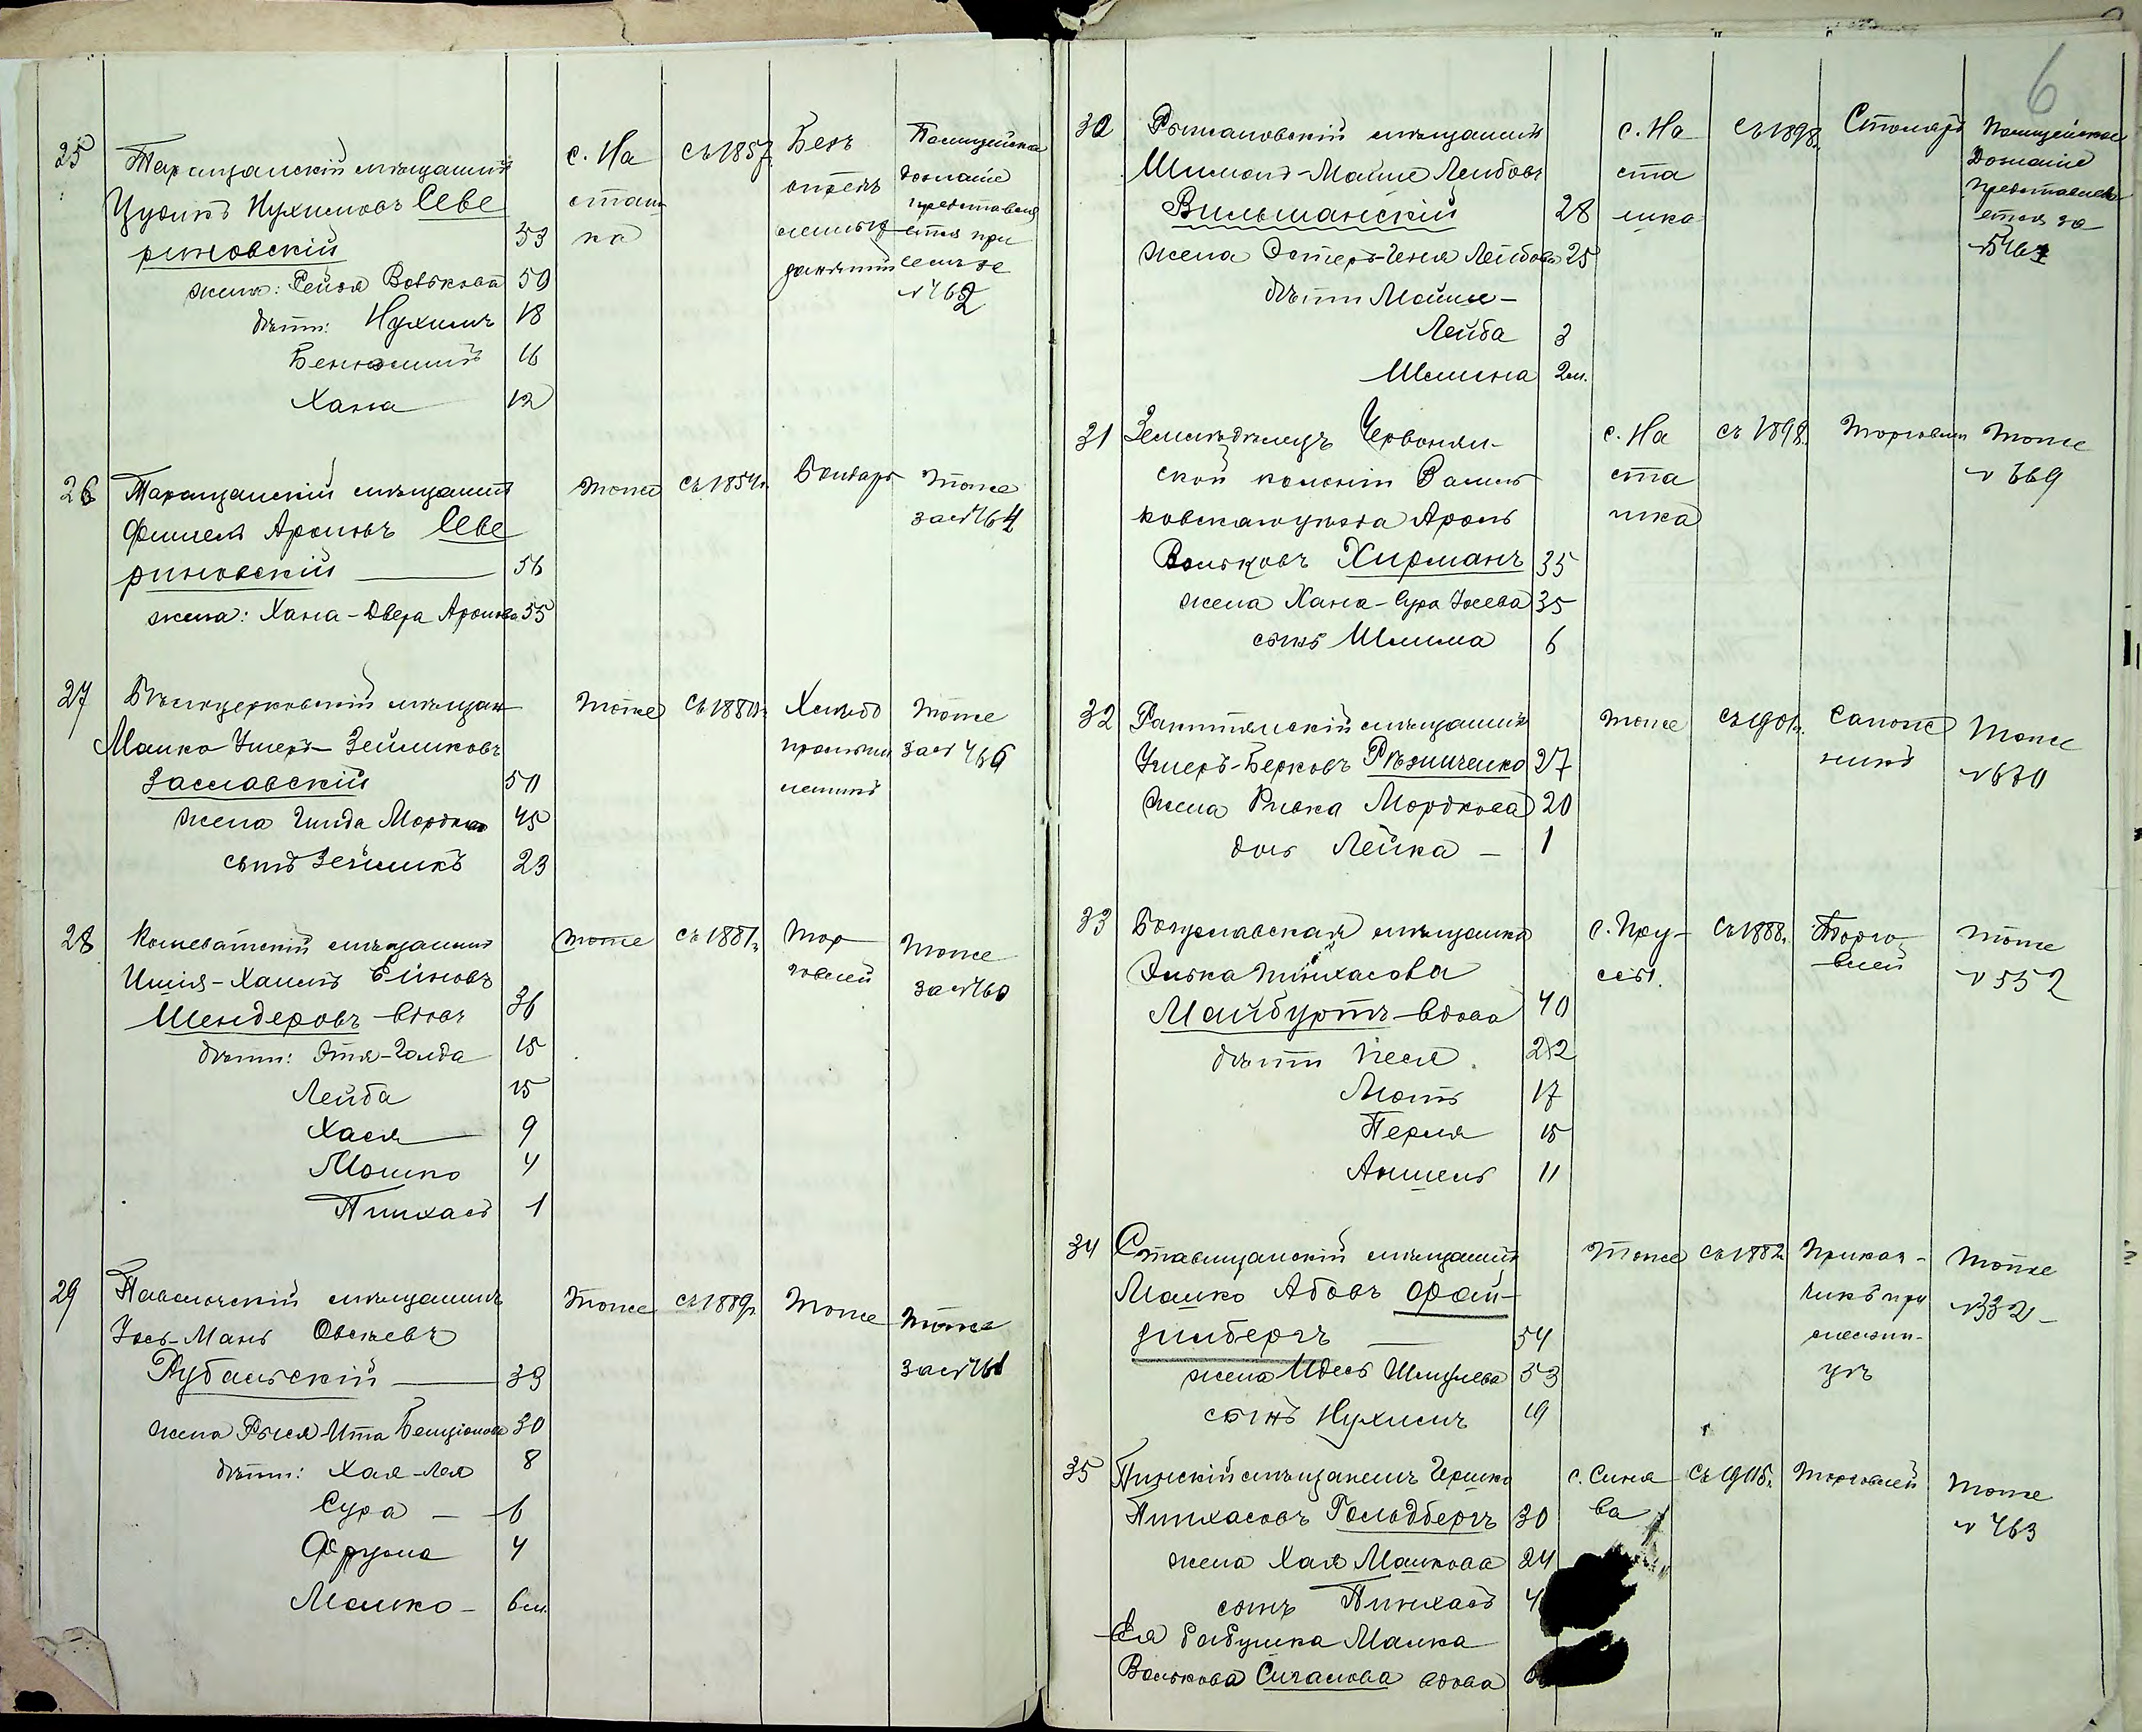 25 Таращанскій мѣщанинъ
Цудикъ Нухимовъ Севе
риновскій 53
жена: Рейзя Волькова 50
дѣти: Нухимъ 18
Беньяминъ 16
Хана 12
с. На
сташ
ка
съ 1857г.
Безъ
опредѣ
леныхъ
занятій
Полицейское
дознаніе
представля
ется при
семъ за
№ 462
26 Таращанскій мѣщанинъ
Фишель Ароновъ Севе
риновскій — 56
жена: Хана-Двера Аронова 55
тоже
съ 1854г.
Бондарь
тоже
за № 464
27 Бѣлоцерковскій мѣщан
Мошко Ушеръ-Зейликовъ
Заславскій 50
жена Гинда Мордков 45
сынъ Зейликъ 23
тоже
съ 1880г.
Хлѣбо
промыш
ленникъ
тоже
за № 466
28 Кошеватскій мѣщанинъ
Ицля-Хаимъ Ейновъ
Шендеровъ вдовъ 36
дѣти: Этя-Голда 15
Лейба 15
Хася 9
Мошко 4
Пинхасъ 1
тоже
съ 1881г.
Тор
говлей
тоже
за № 460
29 Паволочскій мѣщанинъ
Іось-Мань Овсѣевъ
Рубальскій — 39
жена Рыся-Ита Бенціонова 30
дѣти: Хая-Лея 8
Сура — 6
Фрума 4
Мошко — 6 м.
тоже
съ 1889г.
тоже
тоже
за № 461
6
30 Рыжановскій мѣщанинъ
Шимонъ-Майше Лейбовъ
Вильшанскій 28
жена Эстеръ-Геня Лейбова 25
дѣти Мойше-
Лейба 3
Шлиома 2 м.
с. На
ста
шка
съ 1898г.
Столяръ
Полицейское
дознаніе
представля
ется за
№ 5461
31 Земледѣлецъ Червонян-
ской колоніи Василь
ковскаго уѣзда Аронъ
Вольковъ Хирманъ 35
жена Хана-Сура Іосева 35
сынъ Шлиома 6
с. На
ста
шка
съ 1898г.
Торговли
тоже
№ 669
32 Ракитянскій мѣщанинъ
Ушеръ-Берковъ Рѣзниченко 27
жена Ривка Мордкова 20
дочь Лейка — 1
тоже
съ 1901г.
Сапож
никъ
тоже
№ 670
33 Богуславская мѣщанка
Элька Пинхасова
Майбуртъ вдова 40
дѣти Песя 22
Моть 17
Перля 15
Аншель 11
с. Пру-
сы.
съ 1888г.
Торго-
влей
тоже
№ 552
34 Ставищанскій мѣщанинъ
Мошко Абовъ Фай-
динбергъ — 54
жена Идесь Шмулева 53
сынъ Нухимъ 19
тоже
съ 1882г.
Приказ-
чикъ при
мельни-
цѣ
тоже
№ 332 —
35 Пинскій мѣщанинъ Гершко
Пинхасовъ Гольдбергъ 30
жена Хая Мошкова 24
сынъ Пинхасъ 4
Ея бабушка Малка
Волькова Сигалова вдова
с. Синя
ва
Торговлей
тоже
№ 463